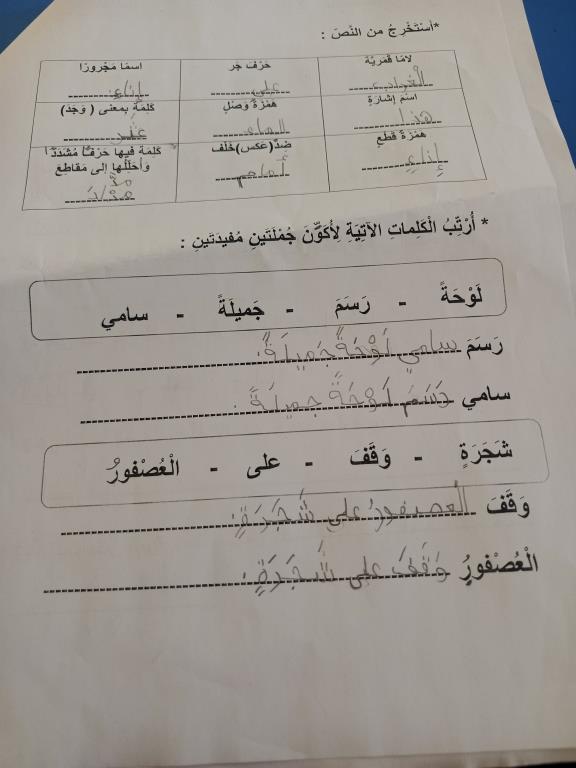 *أسْتَخْرِجُ من النَّصَ :
لامًا قَمَريّة حَرْفَ جَر اسمًا مَجْرورًا
الْغراب على إناءٍ
اسْم إشارَةٍ هَمْزةُ وَصْلٍ كَلِمَةً بمعنى ( وَجَدَ)
هذا الماء عَثَر
هَمْزةُ قَطعٍ ضِدَّ(عَكس)خَلْف كَلمَةً فيها حَرفًا مُشَدَّدًا وَأحَلّلُها إلى مَقاطِعَ
إناءٍ أمام مدَّ
مدْ/دَ
* أُرَتِّبُ الْكَلِماتِ الآتِيَةِ لِأُكَوِّنَ جُمْلَتَينِ مُفيدَتَينِ :
لَوْحَةً - رَسَمَ - جَميلَةً - سامي
رَسَمَ سامي لَوْحَةً جَمِيلَةً.
سامي رَسَمَ لَوْحَةً جميلَةً.
شَجَرَةٍ - وَقَفَ - على - الْعُصْفورُ
وَقَفَ الْعصفورُ على شَجَرَةٍ.
الْعُصْفورُ وَقَفَ على شَجَرَةٍ.